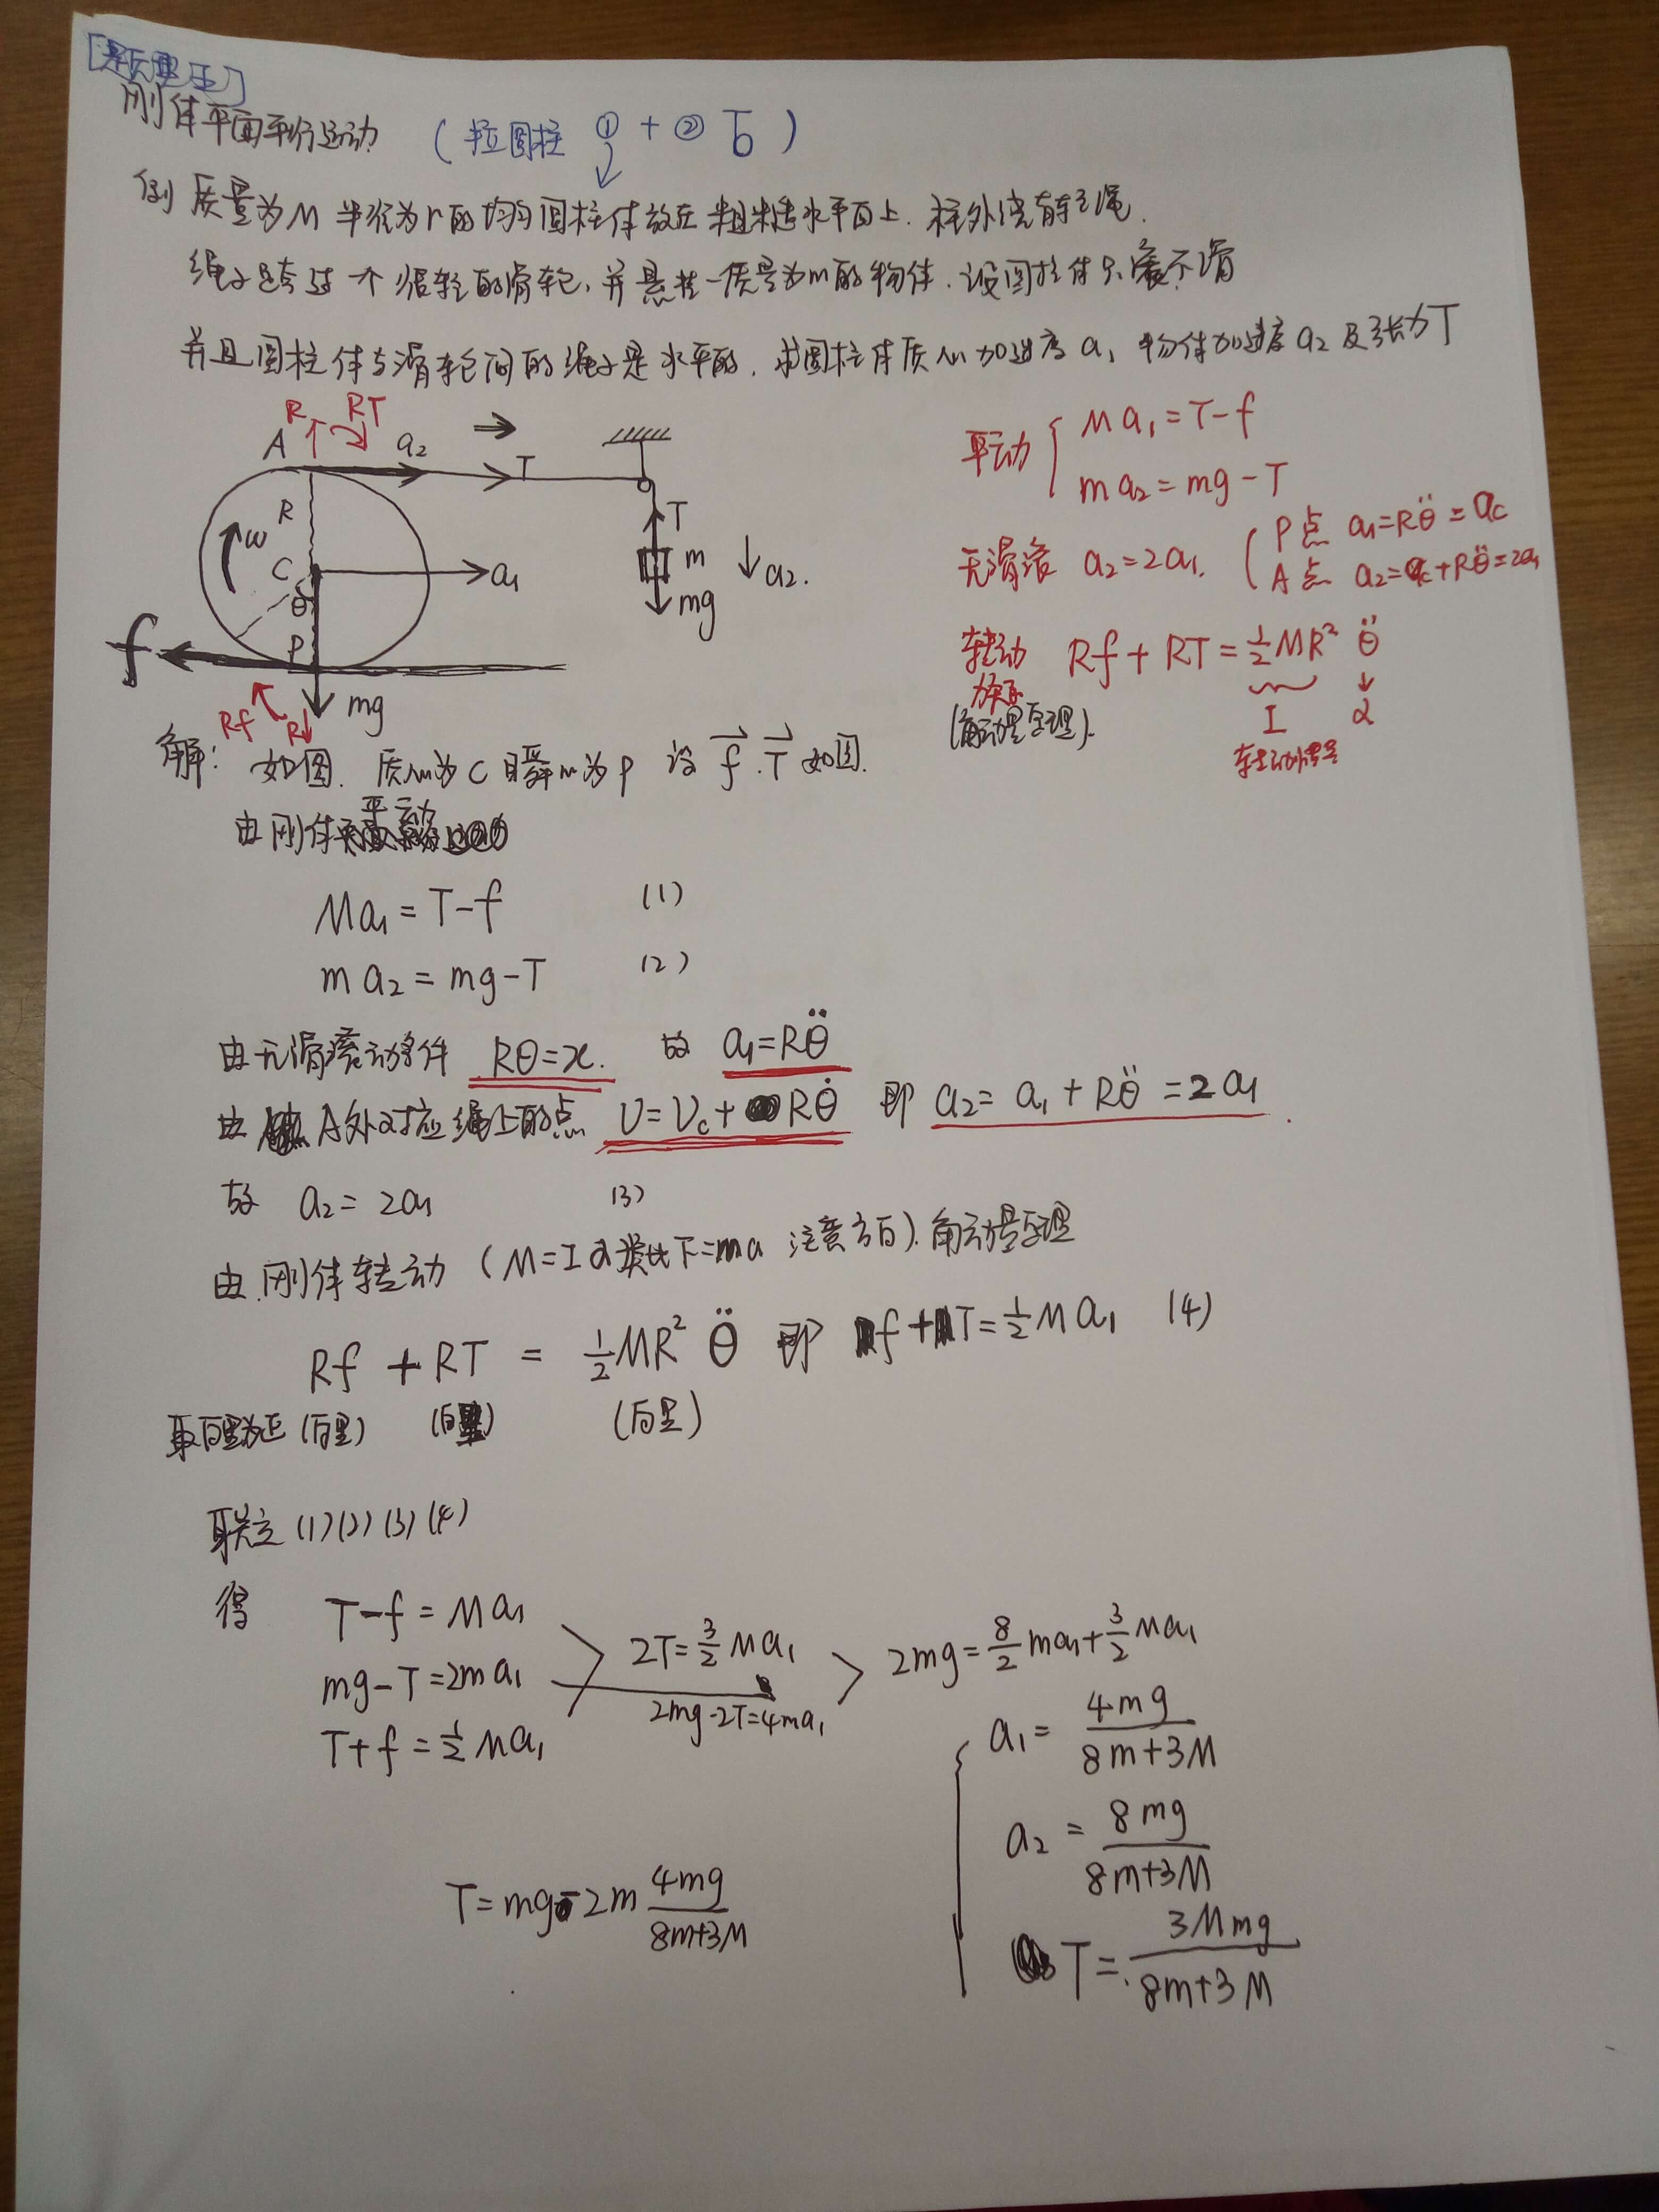 [题型五]
刚体平面平行运动 (拉圆柱 ①+②

例 质量为M 半径为r的均匀圆柱体放在粗糙水平面上. 柱外绕有轻绳.
绳子跨过一个很轻的滑轮, 并悬挂一质量为m的物体. 设圆柱体只滚不滑
并且圆柱体与滑轮间的绳子是水平的. 求圆柱体质心加速度 a₁ 物体加速度 a₂ 及张力T
R RT
A a₂ T
R
ω
C a₁
θ
P
f
T
m a₂.
mg
Rf R mg
平动 { Ma₁=T-f
ma₂=mg-T
无滑滚 a₂=2a₁. { P点 a₁=Rθ̈=ac
A点 a₂=ac+Rθ̈=2a₁
转动 Rf+RT=½MR² θ̈
力矩
(角动量原理).
I α
转动惯量
解: 如图. 质心为C 瞬心为P 设 f⃗.T⃗ 如图.
由刚体平动
Ma₁=T-f (1)
ma₂=mg-T (2)
由无滑滚动条件 Rθ=x. 故 a₁=Rθ̈
由 A处对应绳上的点 v=vc+Rθ̇ 即 a₂=a₁+Rθ̈=2a₁.
故 a₂=2a₁ (3)
由刚体转动 (M=Iα类比F=ma 注意方向). 角动量原理
Rf+RT=½MR² θ̈ 即 f+T=½Ma₁ (4)
取向里为正 (向里) (向里) (向里)
联立 (1)(2)(3)(4)
得 T-f=Ma₁
mg-T=2ma₁
T+f=½Ma₁
2T=3/2 Ma₁
2mg-2T=4ma₁
2mg=8/2 ma₁+3/2 Ma₁
a₁=4mg/(8m+3M)
a₂=8mg/(8m+3M)
T=mg-2m 4mg/(8m+3M)
T=3Mmg/(8m+3M)